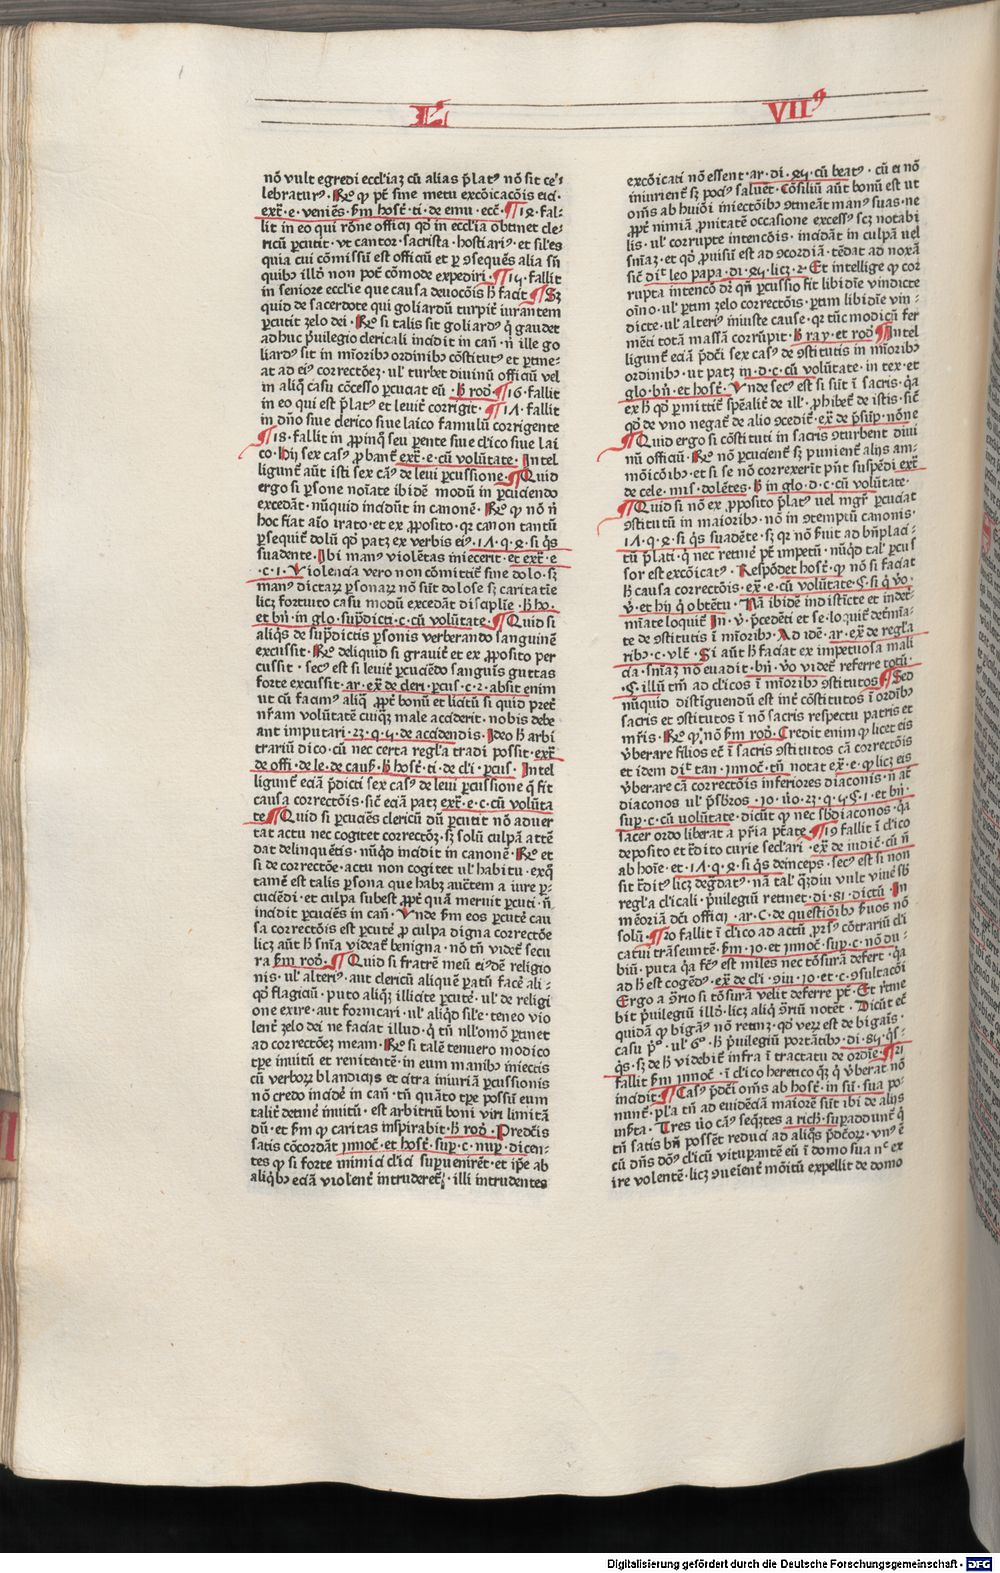 L VIIꝰ
nō vult egredi eccl'iaꝫ cū alias p̄latꝰ nō sit ce-
lebraturꝰ. Rꝰ ꝙ pt̄ sine metu excōicacōis eici.
ext̄. e. veniēs. s̄m host̄. ti. de emu. ecc̄. ¶ 14 fal-
lit in eo qui rōne officij qd̄ in eccl'ia obtinet cle-
ricū ꝑcutit. vt cantor. sacrista. hostiariꝰ. et sil'es
quia cui cōmissū est officiū et ꝑ ꝯsequēs alia sn̄
quibꝰ illd̄ non pot̄ cōmode expediri. ¶ 15. fallit
in seniore eccl'ie que causa deuocōis h̄ facit ¶ Sꝫ
quid de sacerdote qui goliardū turpit̄ iurantem
ꝑcutit zelo dei. Rꝰ si talis sit goliardꝰ ꝙ gaudet
adhuc p̄uilegio clericali incidit in can̄. n̄ ille go
liardꝰ sit in mīoribꝰ ordinibꝰ cōstitutꝰ et ꝑtine-
at ad eiꝰ correctōeꝫ. ul' turbet diuinū officiū vel
in aliq̄ casu cōcesso ꝑcuciat eū. h̄ rod̄. ¶ 16. fallit
in eo qui est p̄latꝰ et leuit̄ corrigit. ¶ 17. fallit
in dn̄o siue clerico siue laico famulū corrigente
¶ 18. fallit in ꝓpinq̄ seu ꝑente siue cl'ico siue lai
co. Hij sex casꝰ ꝓbant̄ ext̄. e. cū volūtate. Intel
ligunt̄ aūt isti sex cāꝰ de leui ꝑcussione. ¶ Quid
ergo si ꝑsone noīate ibidē modū in ꝑcuciendo
excedāt. nūquid incidūt in canonē. Rꝰ ꝙ nō n̄
hoc fiat aīo irato. et ex ꝓposito. qꝛ canon tantū
ꝑsequit̄ dolū qd̄ patꝫ ex verbis eiꝰ. 17. q. 4. si q̄s
suadente. Ibi manꝰ violētas iniecerit. et ext̄. e
. c. 1. Violencia vero non cōmittit̄ sine dolo. sꝫ
manꝰ dictaꝝ ꝑsonaꝝ nō sūt dolose sꝫ caritatīe
licꝫ fortuito casu modū excedāt discipl'īe. h̄ ho.
et bn̄. in glo. sup̄dicti. c. cū volūtate. ¶ Quid si
aliq̄s de sup̄dictis ꝑsonis verberando sanguinē
excussit. Rꝰ deliquid si grauit̄ et ex ꝓposito per
cussit. secꝰ est si leuit̄ ꝑcuciēdo sanguīs guttas
forte excussit. ar. ex̄ de cleri. ꝑcus. c. 2. absit enim
ut cū facimꝰ aliq̄ ꝓpt̄ bonū et licitū si quid pret̄
nr̄am volūtatē cuiqꝫ male acciderit. nobis debe
ant imputari. 23. q. 5. de accidendis. Ideo h̄ arbi
trariū dico. cū nec certa regl'a tradi possit. ext̄.
de offi. de le. de caus̄. h̄ host̄. ti. de cl'i. ꝑcus. Intel
ligunt̄ eciā p̄dicti sex casꝰ de leui ꝑcussione q̄ fit
causa correctōis. sic̄ eciā patꝫ ext̄. e. c. cū volūta
te ¶ Quid si ꝑcuciēs clericū dū ꝑcutit nō aduer
tat actu nec cogitet correctōꝫ. sꝫ solū culpā attē
dat delinquētis. nūqd̄ incidit in canonē. Rꝰ et
si de correctōe. actu non cogitet ul' habitu. exq̄
tamē est talis ꝑsona que habꝫ auct̄em a iure ꝑ-
cuciēdi. et culpa subest ꝓpt̄ quā meruit ꝑcuti. n̄
incidit ꝑcuciēs in can̄. Vnde s̄m eos ꝑcutē cau
sa correctōis est ꝑcutē ꝓ culpa digna correctōe
licꝫ aūt h̄ sn̄ia videat̄ benigna. nō tn̄ videt̄ secu
ra s̄m rod̄. ¶ Quid si fratrē meū eiꝰdē religio
nis. ul' alteriꝰ. aut clericū aliquē patū facē ali-
qd̄ flagiciū. puto aliq̄ꝫ illicite ꝑcutē. ul' de religi
one exire. aut fornicari. ul' aliqd̄ sil'e. teneo vio
lent̄ zelo dei ne faciat illud. q̄ tn̄ null'omō ꝑtinet
ad correctōeꝫ meam. Rꝰ si talē tenuero modico
tp̄e inuitū et renitentē. in eum manibꝰ iniectis
cū verboꝝ blandicijs et citra iniuriā ꝑcussionis
nō credo incidē in can̄. tn̄ quāto tp̄e possū eum
talit̄ detinē inuitū. est arbitriū boni viri limitā
dū. et s̄m ꝙ caritas inspirabit. h̄ rod̄. Predcīs
satis cōcordāt jnnoc̄. et host̄. sup̄. c. nup̄. dicen-
tes ꝙ si forte inimici cl'ici suꝑuenirēt. et ip̄e ab
aliq̄bꝰ eciā violent̄ intruderet̄. illi intrudentes
excōicati nō essent. ar. di. 45. cū beatꝰ. cū ei nō
iniurient̄ sꝫ pociꝰ saluēt. Cōsiliū aūt bonū est ut
om̄s ab huiōi iniectōibꝰ ꝯtineāt manꝰ suas. ne
ꝓpt̄ nimiā ꝓnitatē occasione excessꝰ scꝫ notabi
lis. ul' corrupte intencōis. incidāt in culpā uel
sn̄iaꝫ. et qd̄ ꝓuisū est ad ꝯcordiā. tēdat ad noxā
sic̄ dic̄ leo papa. di. 45. licꝫ. 2. Et intellige ꝙ cor
rupta intencō dr̄ qn̄ ꝑcussio fit libidīe vindicte
oīno. ul' ꝑtim zelo correctōis. ꝑtim libidīe vin-
dicte. ul' alteriꝰ iniuste cause. qꝛ tūc modicū fer
mēti totā massā corrūpit. h̄ ray. et rod̄ ¶ Intel
ligunt̄ eciā p̄dc̄i sex casꝰ de ꝯstitutis in mīoribꝰ
ordinibꝰ. ut patꝫ in. d. c. cū volūtate. in tex. et
glo. bn̄. et host̄. Vnde secꝰ est si sūt ī sacris. q̄a
ex h̄ qd̄ ꝑmittit̄ spēalit̄ de ill'. ꝓhibet̄ de istis. sic̄
qd̄ de vno negat̄ de alio ꝯcedit̄. ex̄ de p̄sūp. nōne
¶ Quid ergo si cōstituti in sacris ꝯturbent diui
nū officiū. Rꝰ nō ꝑcucient̄ sꝫ punient̄ alijs am-
mōicōibꝰ. et si se nō correxerīt pn̄t suspēdi ext̄
de cele. mis. dolētes. h̄ in glo. d. c. cū volūtate.
¶ Quid si nō ex ꝓposito p̄latꝰ uel mgr̄ ꝑcuciat
ꝯstitutū in maioribꝰ. nō in ꝯtemptū canonis.
17. q. 4. si q̄s suadēte. sꝫ qꝛ nō fuit ad bn̄placi-
tū p̄lati. q̄ nec retinē pt̄ impetū. nūqd̄ tal' ꝑcus
sor est excōicatꝰ. Respōdet host̄. ꝙ nō si faciat
h̄ causa correctōis. ex̄. e. cū volūtate. §. si q̄ vo.
v̄. et hij q̄ obtētu. Nā ibidē indistīcte et indet̄-
miate loquit̄. In. v̄. p̄cedēti et se. loquit̄ det̄mīa-
te de ꝯstitutis ī mīoribꝰ. Ad idē. ar. ex̄ de regl'a
ribꝰ. c. vlt̄. Si aūt h̄ faciat ex impetuosa mali
cia. sn̄iaꝫ nō euadit. bn̄. v̄o videt̄ referre totū.
. §. illū tm̄ ad cl'icos ī mīoribꝰ ꝯstitutos ¶ Sed
nūquid distīguendū est int̄ cōstitutos ī ordībꝰ
sacris et ꝯstitutos ī nō sacris respectu patris et
mr̄is. Rꝰ ꝙ nō s̄m rod̄. Credit enim ꝙ licet eis
v̄berare filios et̄ ī sacris ꝯstitutos cā correctōis
et idem dic̄ tan. jnnoc̄. tn̄ notat ex̄. e. ꝙ licꝫ eis
v̄berare cā correctōis inferiores diaconis. n̄ at̄
diaconos ul' p̄sbr̄os. jo. ūo. 23. q. 5. §. 1. et bn̄.
sup̄. c. cū volūtate. dicūt ꝙ nec sb̄diaconos. q̄a
sacer ordo liberat a pr̄ia ptāte. ¶ 19 fallit ī cl'ico
deposito et tr̄dito curie secl'ari. ex̄ de iudic̄. cū n̄
ab hoīe. et. 17. q. 4. si q̄s deinceps. secꝰ est si non
sit tr̄ditꝰ licꝫ degdatꝰ. nā tal' q̄ꝫdiu vult viuē sb̄
regl'a cl'icali. p̄uilegiū retinet. di. 81. dictū. In
mēoriā dc̄i officij. ar. C. de questiōibꝰ. s̄uos nō
solū. ¶ 20 fallit ī cl'ico ad actū ꝓrsꝰ cōtrariū cl'i
catui trāseuntē. s̄m. jo. et jnnoc̄. sup̄. c. nō du-
biū. puta q̄a fcꝰ est miles nec tōsurā defert. q̄a
ad h̄ est cogēdꝰ. ex̄ de cl'i. ꝯiu. jo. et. c. ꝯsultacōi
Ergo a ꝯ̄rio si tōsurā velit deferre pt̄. Et r̄time
bit p̄uilegiū illd̄. licꝫ aliq̄ ꝯ̄riū notēt. Dicūt et̄
quidā ꝙ bigāꝰ nō retinꝫ. qd̄ veꝝ est de bigaīs.
casu pꝰ. ul' 6ꝰ. h̄ p̄uilegiū portātibꝰ. di. 84. q̄s-
q̄s. sꝫ de h̄ videbit̄ infra ī tractatu de ordīe. ¶ 21
fallit s̄m jnnoc̄. ī cl'ico heretico q̄ꝫ q̄ v̄berat nō
incidit. ¶ Casꝰ p̄dc̄i om̄s ab host̄. in sūī. sua po-
nunt̄. pl'a tn̄ ad euidēciā maiorē sūt ibi de alijs
mixta. Tres ūo cāꝰ seq̄ntes a rich. supaddunt̄ q̄
tn̄ satis bn̄ possēt reduci ad aliq̄s p̄dc̄oꝝ. Vnꝰ ē
cū dn̄s dōꝰ cl'icū vituꝑantē eū ī domo sua nꝰ ex
ire volentē. licꝫ ꝯueient̄ mōitū expellit de domo
Digitalisierung gefördert durch die Deutsche Forschungsgemeinschaft - DFG